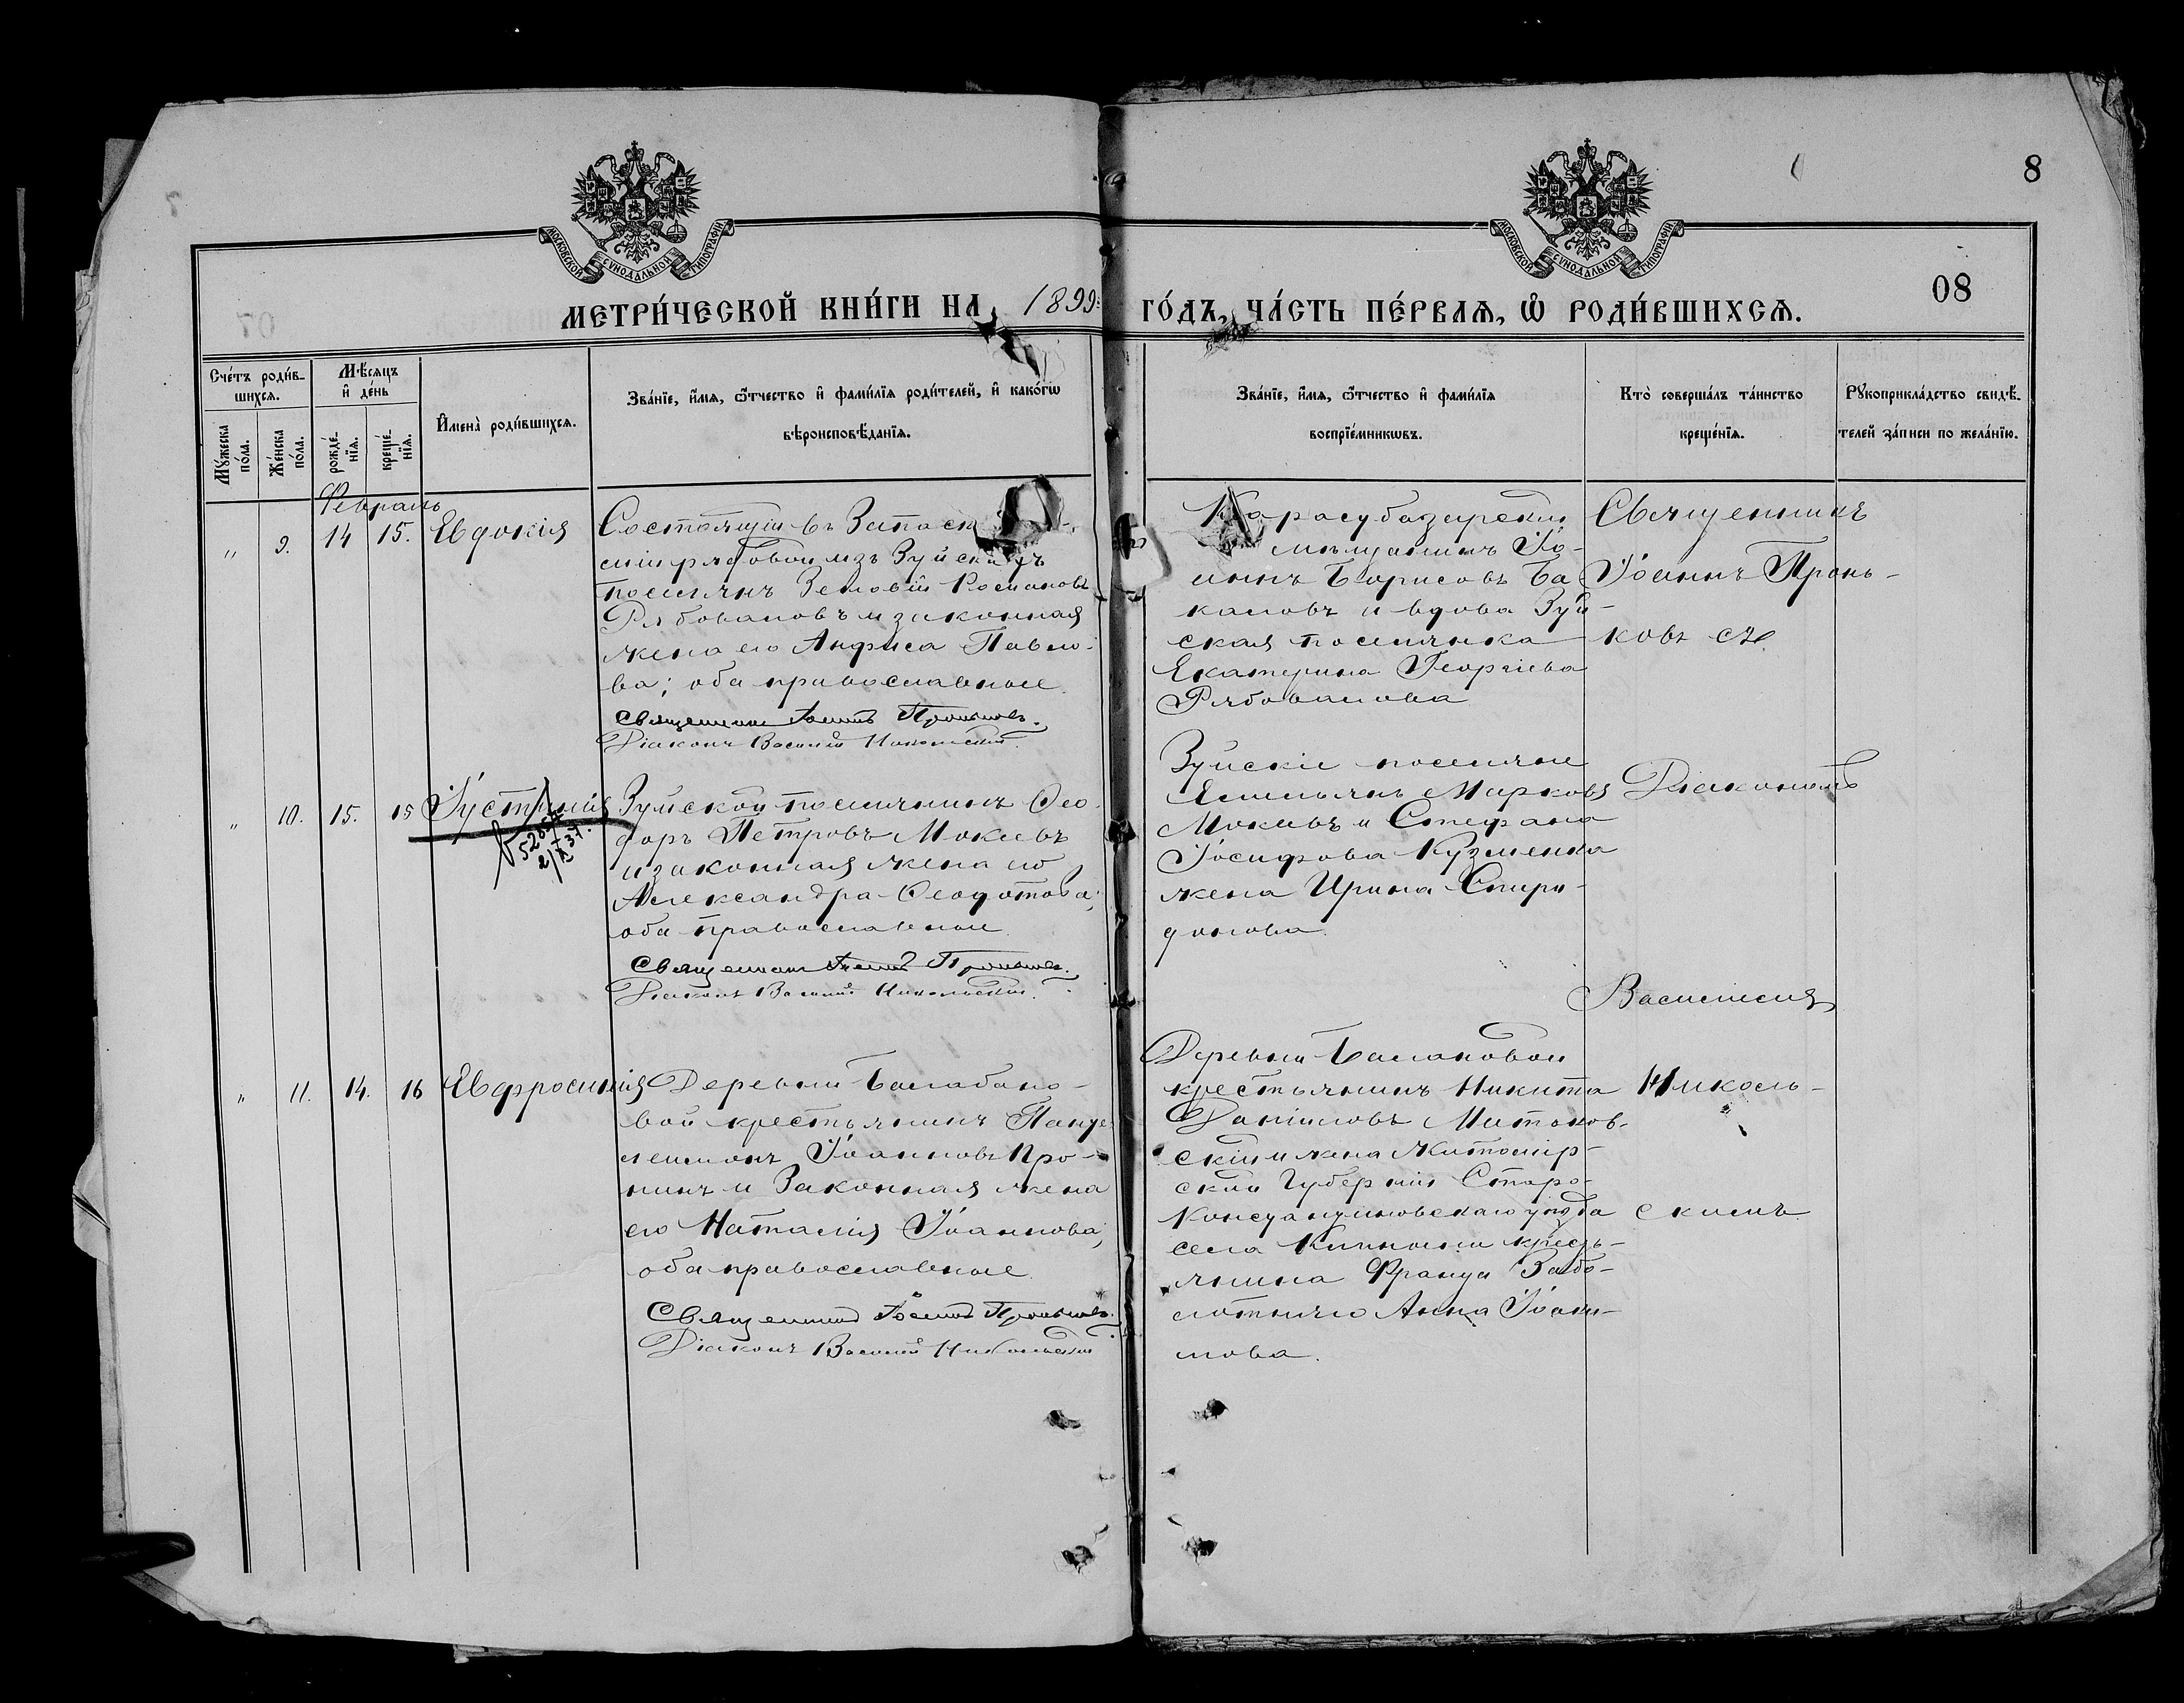 8
08
МОСКОВСКОЙ СѴНОДАЛЬНОЙ ТИПОГРАФІИ
МОСКОВСКОЙ СѴНОДАЛЬНОЙ ТИПОГРАФІИ
МЕТРИ́ЧЕСКОЙ КНИ́ГИ НА 1899 ГО́ДЪ, ЧА́СТЬ ПЕ́РВАѦ, Ѡ РОДИ́ВШИХСѦ.
Сче́тъ роди́в-
шихсѧ.
Мꙋ́жеска по́ла.
Же́нска по́ла.
Мѣ́сѧцъ
и де́нь
рожде́-
нїѧ.
креще́-
нїѧ.
Имена̀ роди́вшихсѧ.
Зва́нїе, и́мѧ, ѻ́тчество и фами́лїѧ роди́телей, и како́гѡ
вѣроисповѣ́данїѧ.
Зва́нїе, и́мѧ, ѻ́тчество и фами́лїѧ
воспрїе́мникѡвъ.
Кто̀ соверша́лъ та́инство
креще́нїѧ.
Рꙋкоприкла́дство свидѣ́-
телей за́писи по жела́нїю.
Февраль
" 9. 14 15. Евдокія
Состоящій въ Запасѣ
рядовой изъ Зуйскихъ
поселянъ Зеновій Романовъ
Рябовановъ и законная
жена его Анфиса Павло-
ва; оба православные.
Священникъ Іоаннъ Проньковъ.
Діаконъ Василій Никольскій.
Карасубазарскій
мѣщанинъ Іо-
аннъ Борисовъ Ба
кановъ и вдова Зуй-
ская поселянка
Екатерина Георгіева
Рябованова
Священникъ
Іоаннъ Пронь-
ковъ съ
" 10. 15. 15 Іустинія
5265
2/X 37.
Зуйской поселянинъ Ѳео-
доръ Петровъ Мокіевъ
и законная жена его
Александра Ѳеодотова;
оба православные.
Священникъ Іоаннъ Проньковъ.
Діаконъ Василій Никольскій.
Зуйскіе поселяне
Емельянъ Марковъ
Мокіевъ и Стефана
Іосифова Кузменка
жена Ирина Спири-
донова.
Діакономъ
Василіемъ
" 11. 14. 16 Евфросинія
Деревни Балабано-
вой крестьянинъ Панте
леимонъ Іоанновъ Про-
нинъ и Законная жена
его Наталія Іоаннова;
оба православные.
Священникъ Іоаннъ Проньковъ.
Діаконъ Василій Никольскій
Деревни
крестьянинъ Никита
Даніиловъ Митанов-
скій и жена Житомір-
ской Губерніи Старо-
Константиновскаго уѣзда
села кресть-
янина Франца Забо-
лотняго Анна Іоан-
нова.
Николь-
скимъ